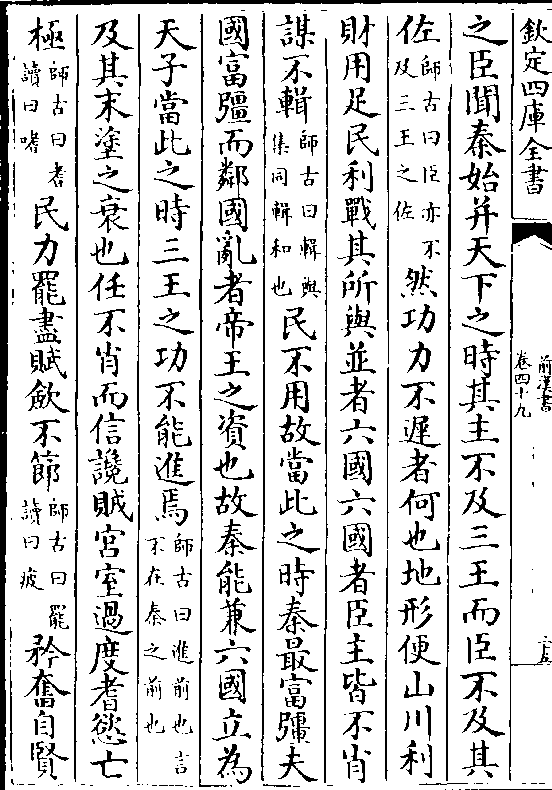 欽定四庫全書
前漢書
卷四十九
之臣聞秦始并天下之時其主不及三王而臣不及其
佐師古曰臣亦不及三王之佐然功力不遲者何也地形便山川利
財用足民利戰其所與並者六國六國者臣主皆不肖
謀不輯師古曰輯與集同輯和也民不用故當此之時秦最富彊夫
國富彊而鄰國亂者帝王之資也故秦能兼六國立為
天子當此之時三王之功不能進焉師古曰進前也言不在秦之前也
及其末塗之衰也任不肖而信讒賊宮室過度耆慾亡
極師古曰耆讀曰嗜民力罷盡賦斂不節師古曰罷讀曰疲矜奮自賢